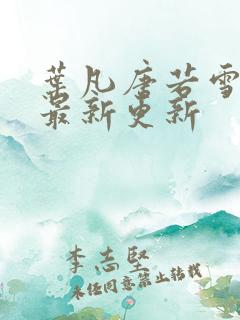 葉凡唐若雪
最新更新
李志堅
未经同意禁止转载